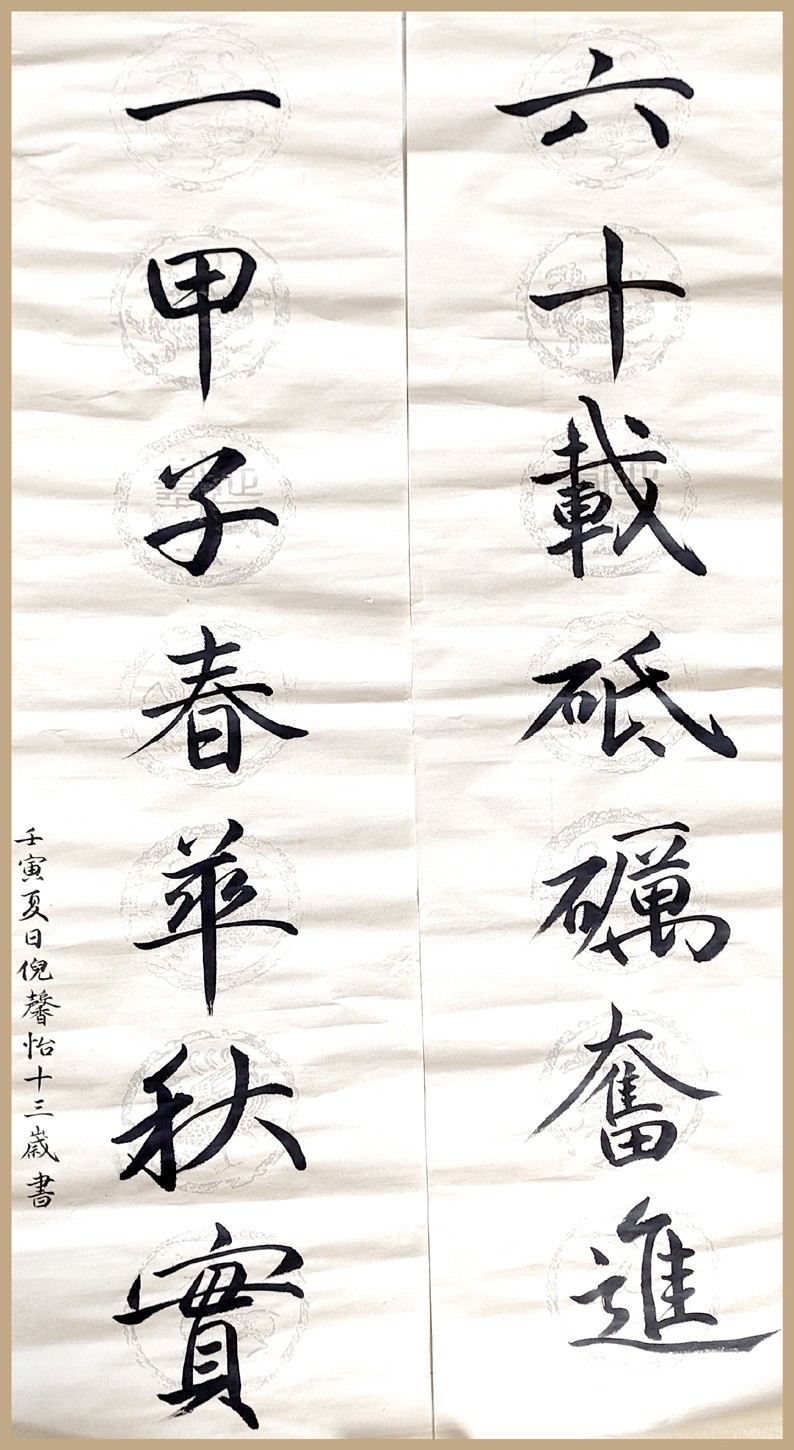 六十載砥礪奮進
一甲子春華秋實
壬寅夏日倪馨怡十三歲書